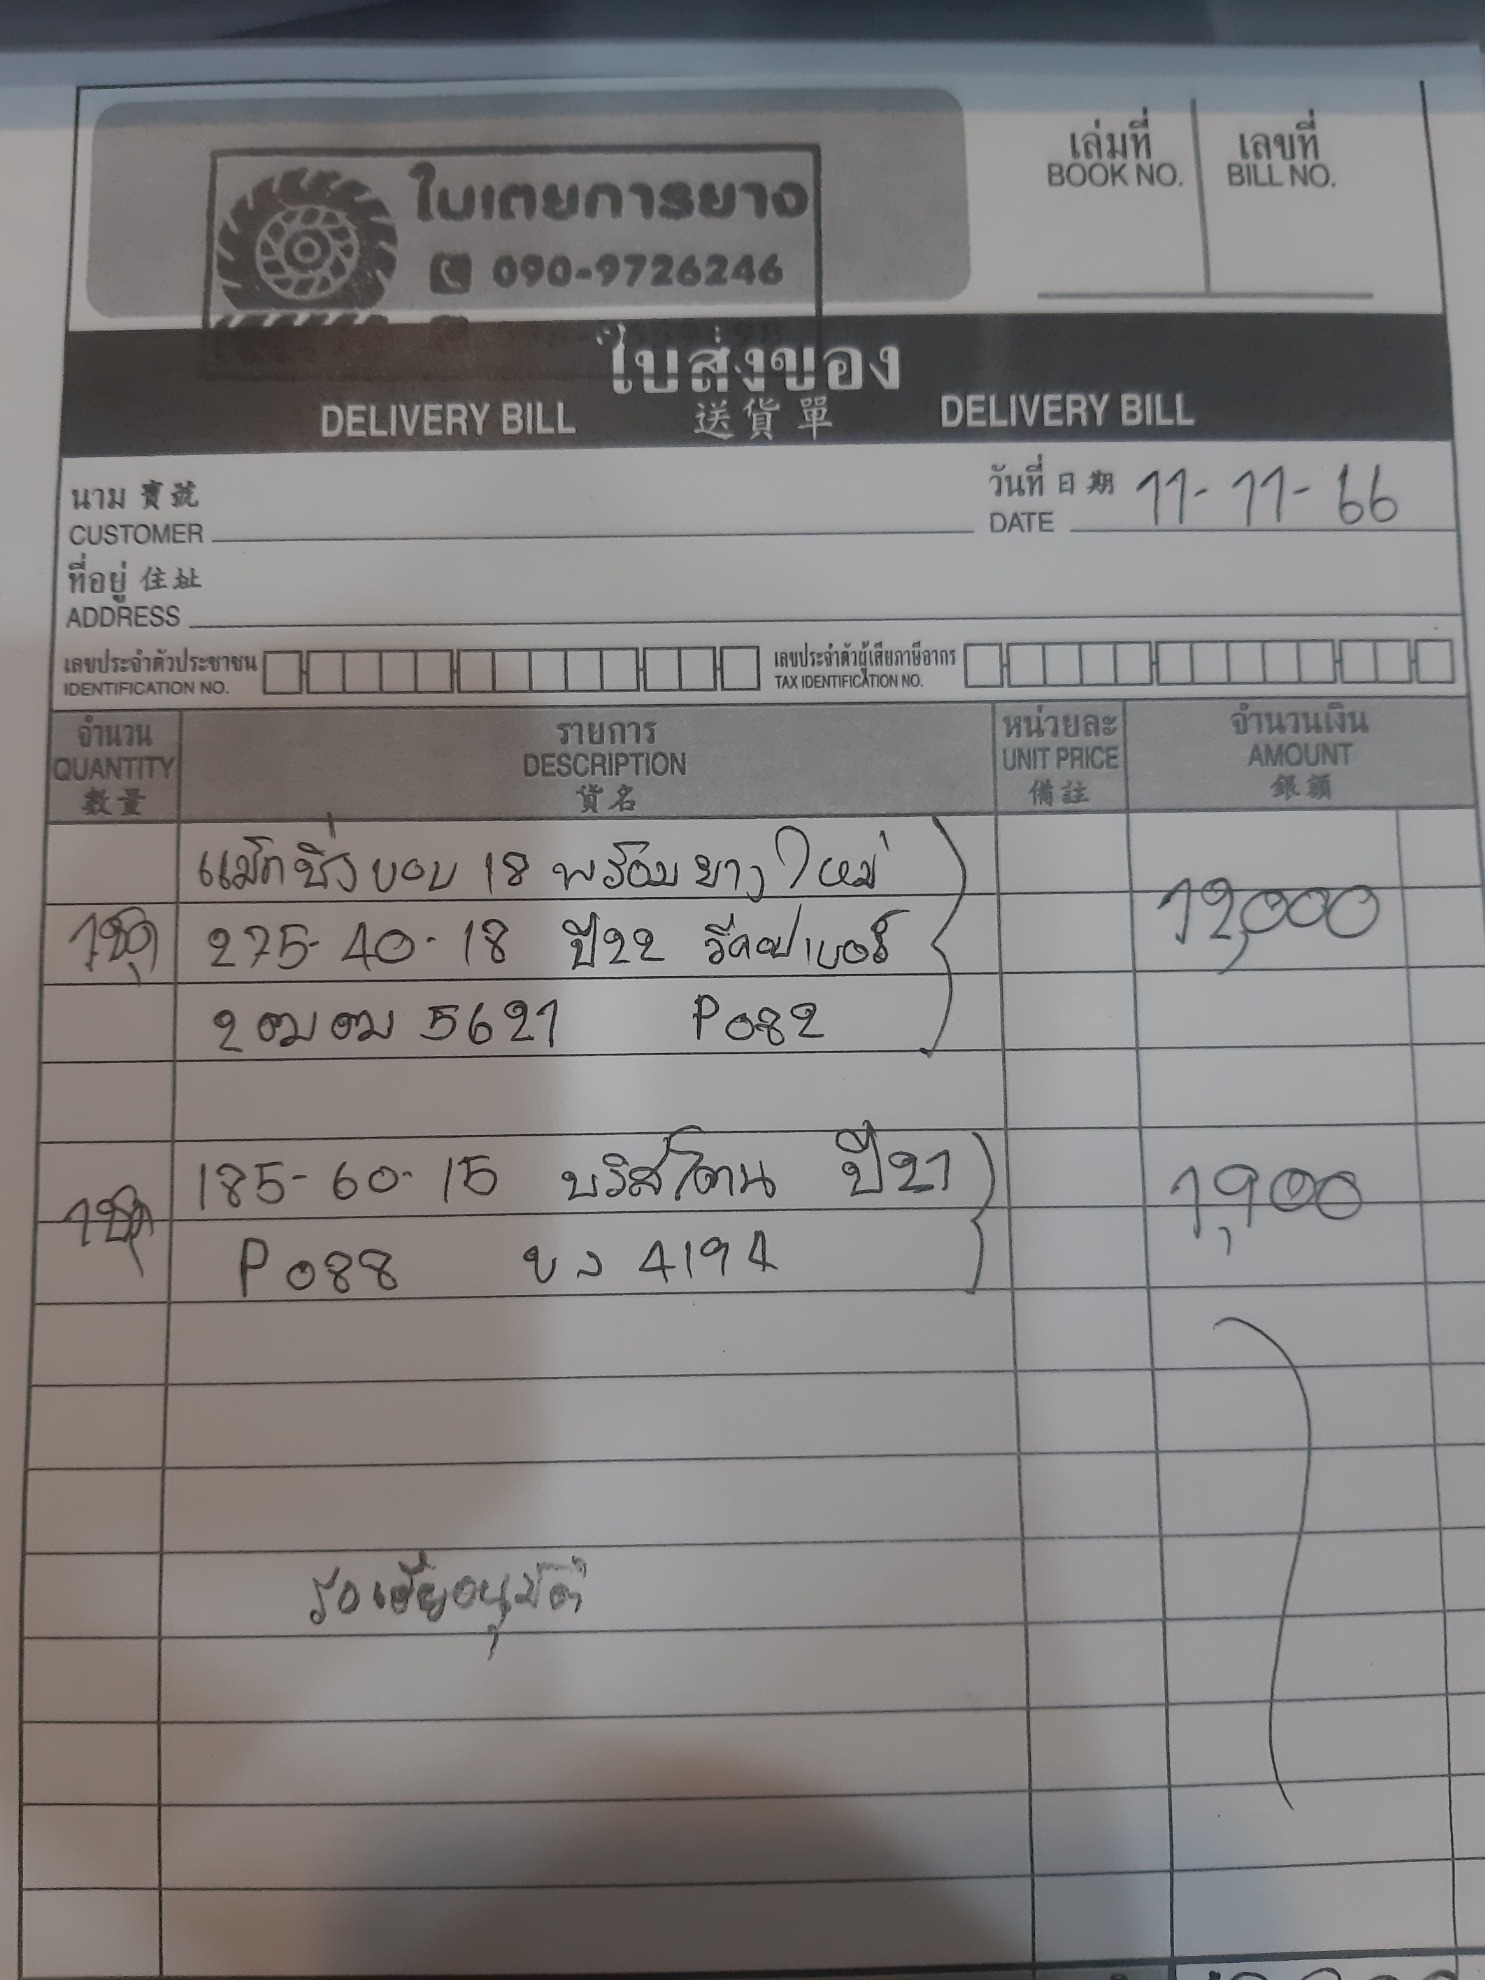 ใบเตยการยาง
090-9726246
เล่มที่ เลขที่
BOOK NO. BILL NO.
ใบส่งของ
DELIVERY BILL 送貨單 DELIVERY BILL
นาม 寶號 วันที่ 日期 11-11-66
CUSTOMER DATE
ที่อยู่ 住址
ADDRESS
เลขประจำตัวประชาชน เลขประจำตัวผู้เสียภาษีอากร
IDENTIFICATION NO. TAX IDENTIFICATION NO.
จำนวน รายการ หน่วยละ จำนวนเงิน
QUANTITY DESCRIPTION UNIT PRICE AMOUNT
數量 貨名 備註 銀額
แม็กซิ่งขอบ 18 พร้อมยางใหม่
1ชุด 275-40-18 ปี22 12,000
2 ฒฒ 5621 P082
185-60-15 บริสโตน ปี21 1,900
1ชุด
P088 ขง 4194
รอเฮียอนุมัติ